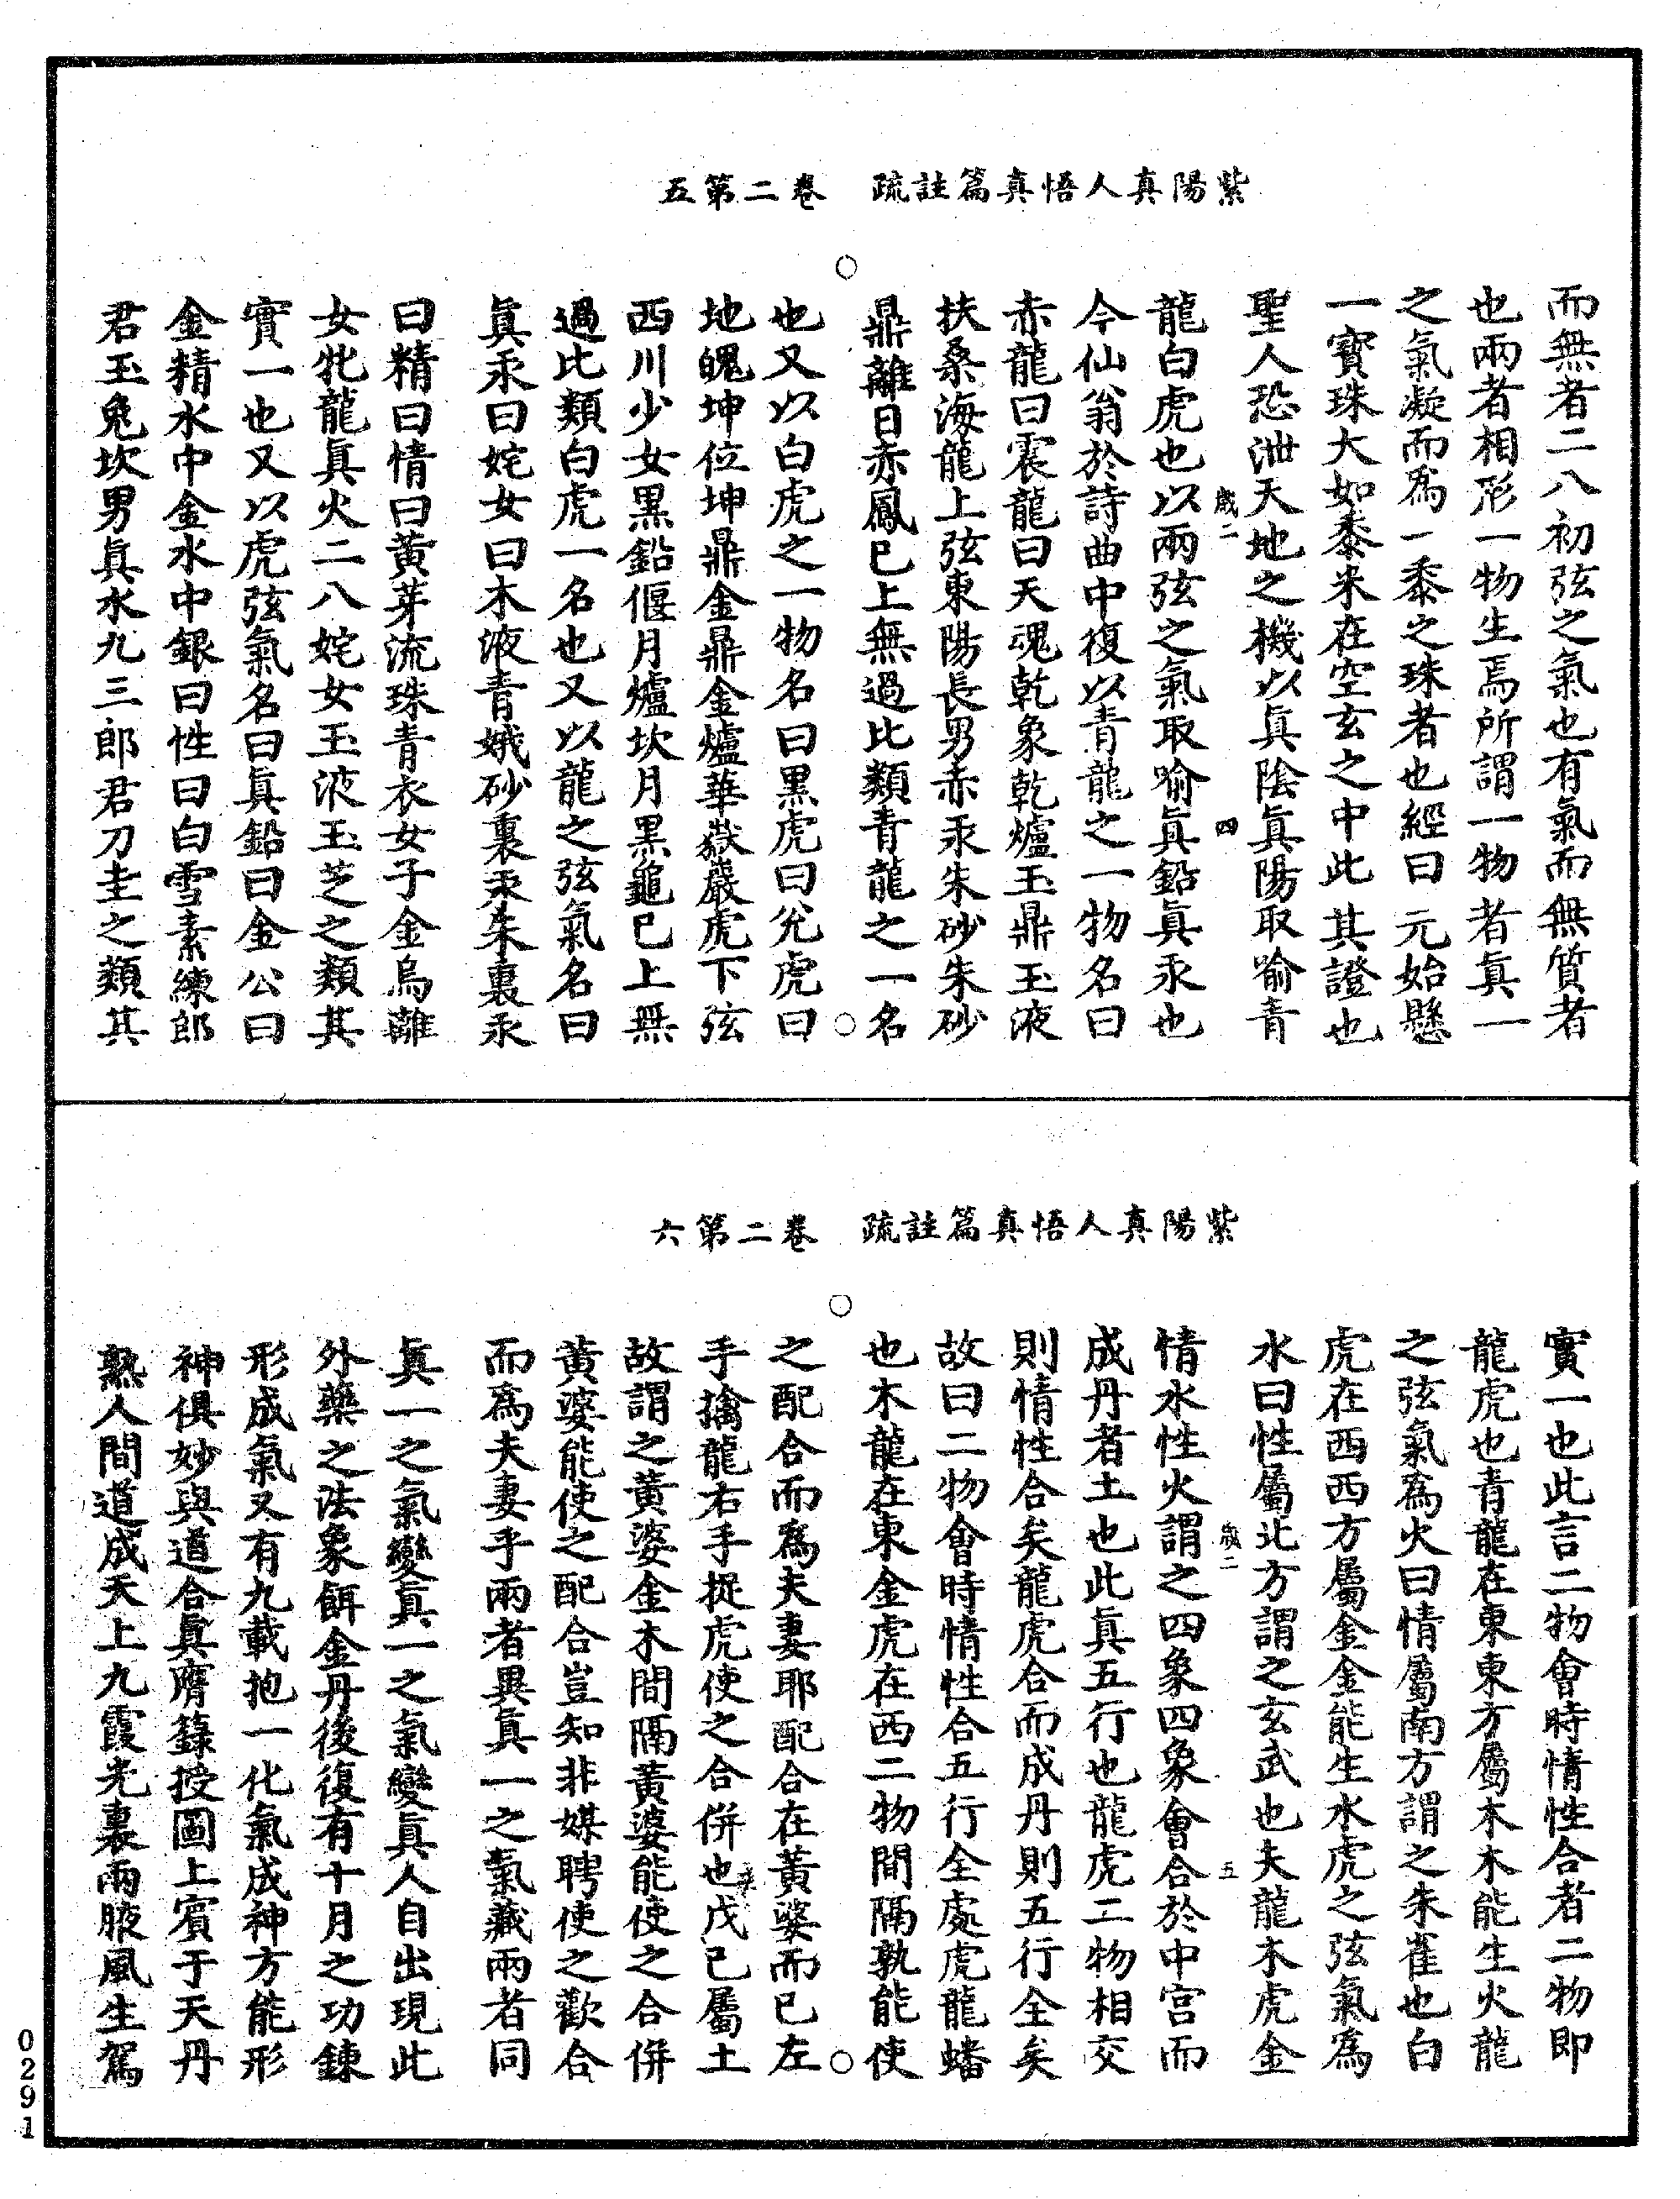 紫陽真人悟真篇註疏　卷二第五
而無者二八初弦之氣也有氣而無質者
也兩者相形一物生焉所謂一物者眞一
之氣凝而爲一黍之珠者也經曰元始懸
一寶珠大如黍米在空玄之中此其證也
聖人恐泄天地之機以眞陰眞陽取喻青
歲二　四
龍白虎也以兩弦之氣取喻眞鉛眞汞也
今仙翁於詩曲中復以青龍之一物名曰
赤龍曰震龍曰天魂乾象乾爐玉鼎玉液
扶桑海龍上弦東陽長男赤汞朱砂朱砂
鼎離日赤鳳已上無過比類青龍之一名
也又以白虎之一物名曰黑虎曰兊虎曰
地魄坤位坤鼎金鼎金爐華嶽巖虎下弦
西川少女黑鉛偃月爐坎月黑龜已上無
過比類白虎一名也又以龍之弦氣名曰
眞汞曰姹女曰木液青娥砂裏汞朱裏汞
曰精曰情曰黃芽流珠青衣女子金烏離
女牝龍眞火二八姹女玉液玉芝之類其
實一也又以虎弦氣名曰眞鉛曰金公曰
金精水中金水中銀曰性曰白雪素練郎
君玉兔坎男眞水九三郎君刀圭之類其
紫陽真人悟真篇註疏　卷二第六
實一也此言二物會時情性合者二物即
龍虎也青龍在東東方屬木木能生火龍
之弦氣爲火曰情屬南方謂之朱雀也白
虎在西西方屬金金能生水虎之弦氣爲
水曰性屬北方謂之玄武也夫龍木虎金
歲二　五
情水性火謂之四象四象會合於中宮而
成丹者土也此眞五行也龍虎二物相交
則情性合矣龍虎合而成丹則五行全矣
故曰二物會時情性合五行全處虎龍蟠
也木龍在東金虎在西二物間隔孰能使
之配合而爲夫妻耶配合在黃婆而已左
手擒龍右手捉虎使之合併也戊己屬土
故謂之黃婆金木間隔黃婆能使之合併
黃婆能使之配合豈知非媒聘使之歡合
而爲夫妻乎兩者異眞一之氣藏兩者同
眞一之氣變眞一之氣變眞人自出現此
外藥之法象餌金丹後復有十月之功鍊
形成氣又有九載抱一化氣成神方能形
神俱妙與道合眞膺籙授圖上賓于天丹
熟人間道成天上九霞光裏兩腋風生駕
0291